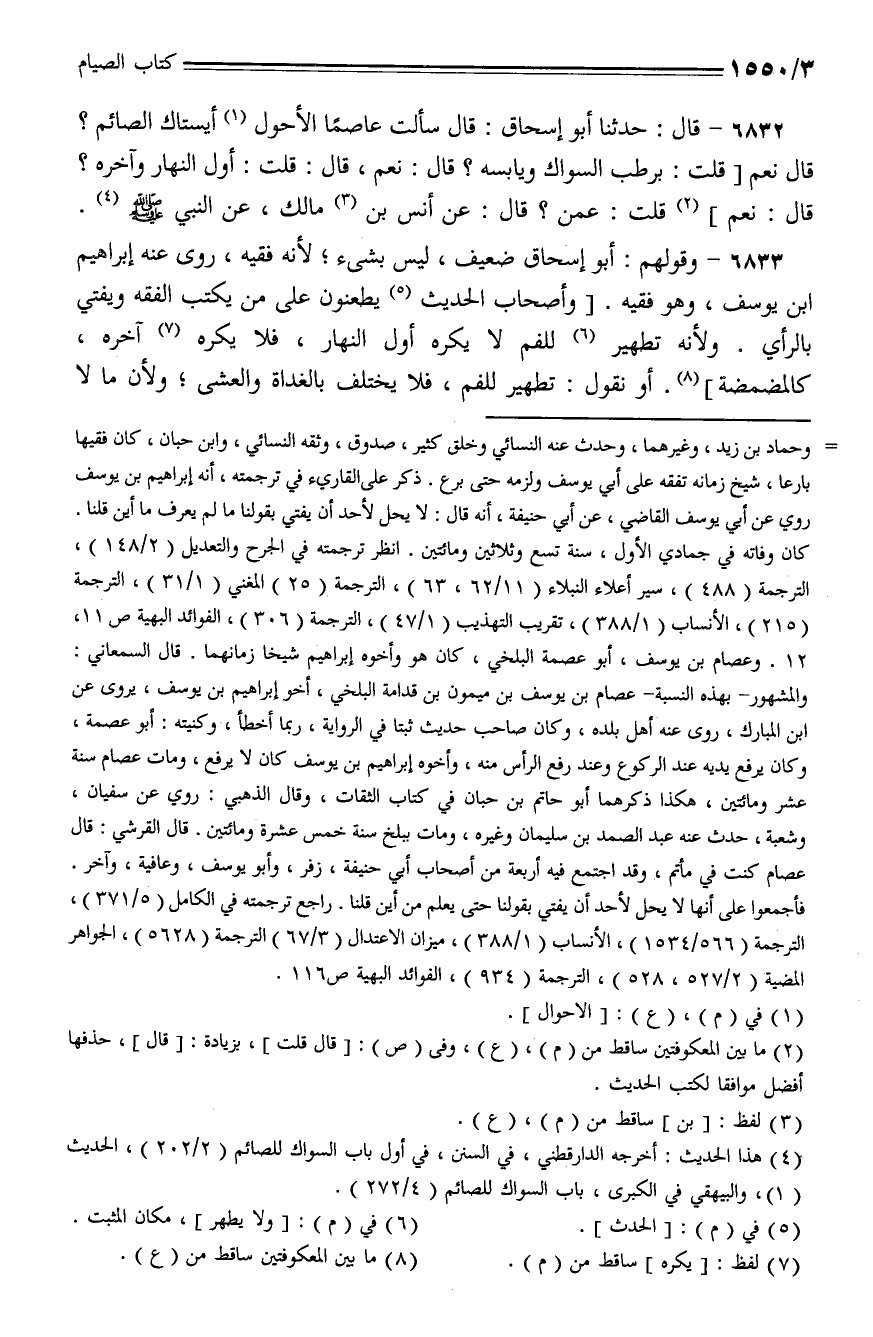 ١٥٥٠/٣ كتاب الصيام
٦٨٣٢ - قال : حدثنا أبو إسحاق : قال سألت عاصمًا الأحول (١) أيستاك الصائم ؟
قال نعم [ قلت : برطب السواك ويابسه ؟ قال : نعم ، قال : قلت : أول النهار وآخره ؟
قال : نعم ] (٢) قلت : عمن ؟ قال : عن أنس بن (٣) مالك ، عن النبي ﷺ (٤) .
٦٨٣٣ - وقولهم : أبو إسحاق ضعيف ، ليس بشىء ؛ لأنه فقيه ، روى عنه إبراهيم
ابن يوسف ، وهو فقيه . [ وأصحاب الحديث (٥) يطعنون على من يكتب الفقه ويفتي
بالرأي . ولأنه تطهير (٦) للفم لا يكره أول النهار ، فلا يكره (٧) آخره ،
كالمضمضة ] (٨) . أو نقول : تطهير للفم ، فلا يختلف بالغداة والعشى ؛ ولأن ما لا
= وحماد بن زيد ، وغيرهما ، وحدث عنه النسائي وخلق كثير ، صدوق ، وثقه النسائي ، وابن حبان ، كان فقيها
بارعا ، شيخ زمانه تفقه على أبي يوسف ولزمه حتى برع . ذكر على القاريء في ترجمته ، أنه إبراهيم بن يوسف
روي عن أبي يوسف القاضي ، عن أبي حنيفة ، أنه قال : لا يحل لأحد أن يفتي بقولنا ما لم يعرف ما أين قلنا .
كان وفاته في جمادي الأول ، سنة تسع وثلاثين ومائتين . انظر ترجمته في الجرح والتعديل ( ١٤٨/٢ ) ،
الترجمة ( ٤٨٨ ) ، سير أعلاء النبلاء ( ٦٢/١١ ، ٦٣ ) ، الترجمة ( ٢٥ ) المغني ( ٣١/١ ) ، الترجمة
( ٢١٥ ) ، الأنساب ( ٣٨٨/١ ) ، تقريب التهذيب ( ٤٧/١ ) ، الترجمة ( ٣٠٦ ) ، الفوائد البهية ص ١١ ،
١٢ . وعصام بن يوسف ، أبو عصمة البلخي ، كان هو وأخوه إبراهيم شيخا زمانهما . قال السمعاني :
والمشهور- بهذه النسبة- عصام بن يوسف بن ميمون بن قدامة البلخي ، أخو إبراهيم بن يوسف ، يروى عن
ابن المبارك ، روى عنه أهل بلده ، وكان صاحب حديث ثبتا في الرواية ، ربما أخطأ ، وكنيته : أبو عصمة ،
وكان يرفع يديه عند الركوع وعند رفع الرأس منه ، وأخوه إبراهيم بن يوسف كان لا يرفع ، ومات عصام سنة
عشر ومائتين ، هكذا ذكرهما أبو حاتم بن حبان في كتاب الثقات ، وقال الذهبي : روي عن سفيان ،
وشعبة ، حدث عنه عبد الصمد بن سليمان وغيره ، ومات ببلخ سنة خمس عشرة ومائتين . قال القرشي : قال
عصام كنت في مأتم ، وقد اجتمع فيه أربعة من أصحاب أبي حنيفة ، زفر ، وأبو يوسف ، وعافية ، وآخر .
فأجمعوا على أنها لا يحل لأحد أن يفتي بقولنا حتى يعلم من أين قلنا . راجع ترجمته في الكامل ( ٣٧١/٥ ) ،
الترجمة ( ١٥٣٤/٥٦٦ ) ، الأنساب ( ٣٨٨/١ ) ، ميزان الاعتدال ( ٦٧/٣ ) الترجمة ( ٥٦٢٨ ) ، الجواهر
المضية ( ٥٢٧/٢ ، ٥٢٨ ) ، الترجمة ( ٩٣٤ ) ، الفوائد البهية ص١١٦ .
(١) في ( م ) ، ( ع ) : [ الاحوال ] .
(٢) ما بين المعكوفتين ساقط من ( م ) ، ( ع ) ، وفى ( ص ) : [ قال قلت ] ، بزيادة : [ قال ] ، حذفها
أفضل موافقا لكتب الحديث .
(٣) لفظ : [ بن ] ساقط من ( م ) ، ( ع ) .
(٤) هذا الحديث : أخرجه الدارقطني ، في السنن ، في أول باب السواك للصائم ( ٢٠٢/٢ ) ، الحديث
( ١ ) ، والبيهقي في الكبرى ، باب السواك للصائم ( ٢٧٢/٤ ) .
(٥) في ( م ) : [ الحدث ] . (٦) في ( م ) : [ ولا يطهر ] ، مكان المثبت .
(٧) لفظ : [ يكره ] ساقط من ( م ) . (٨) ما بين المعكوفتين ساقط من ( ع ) .